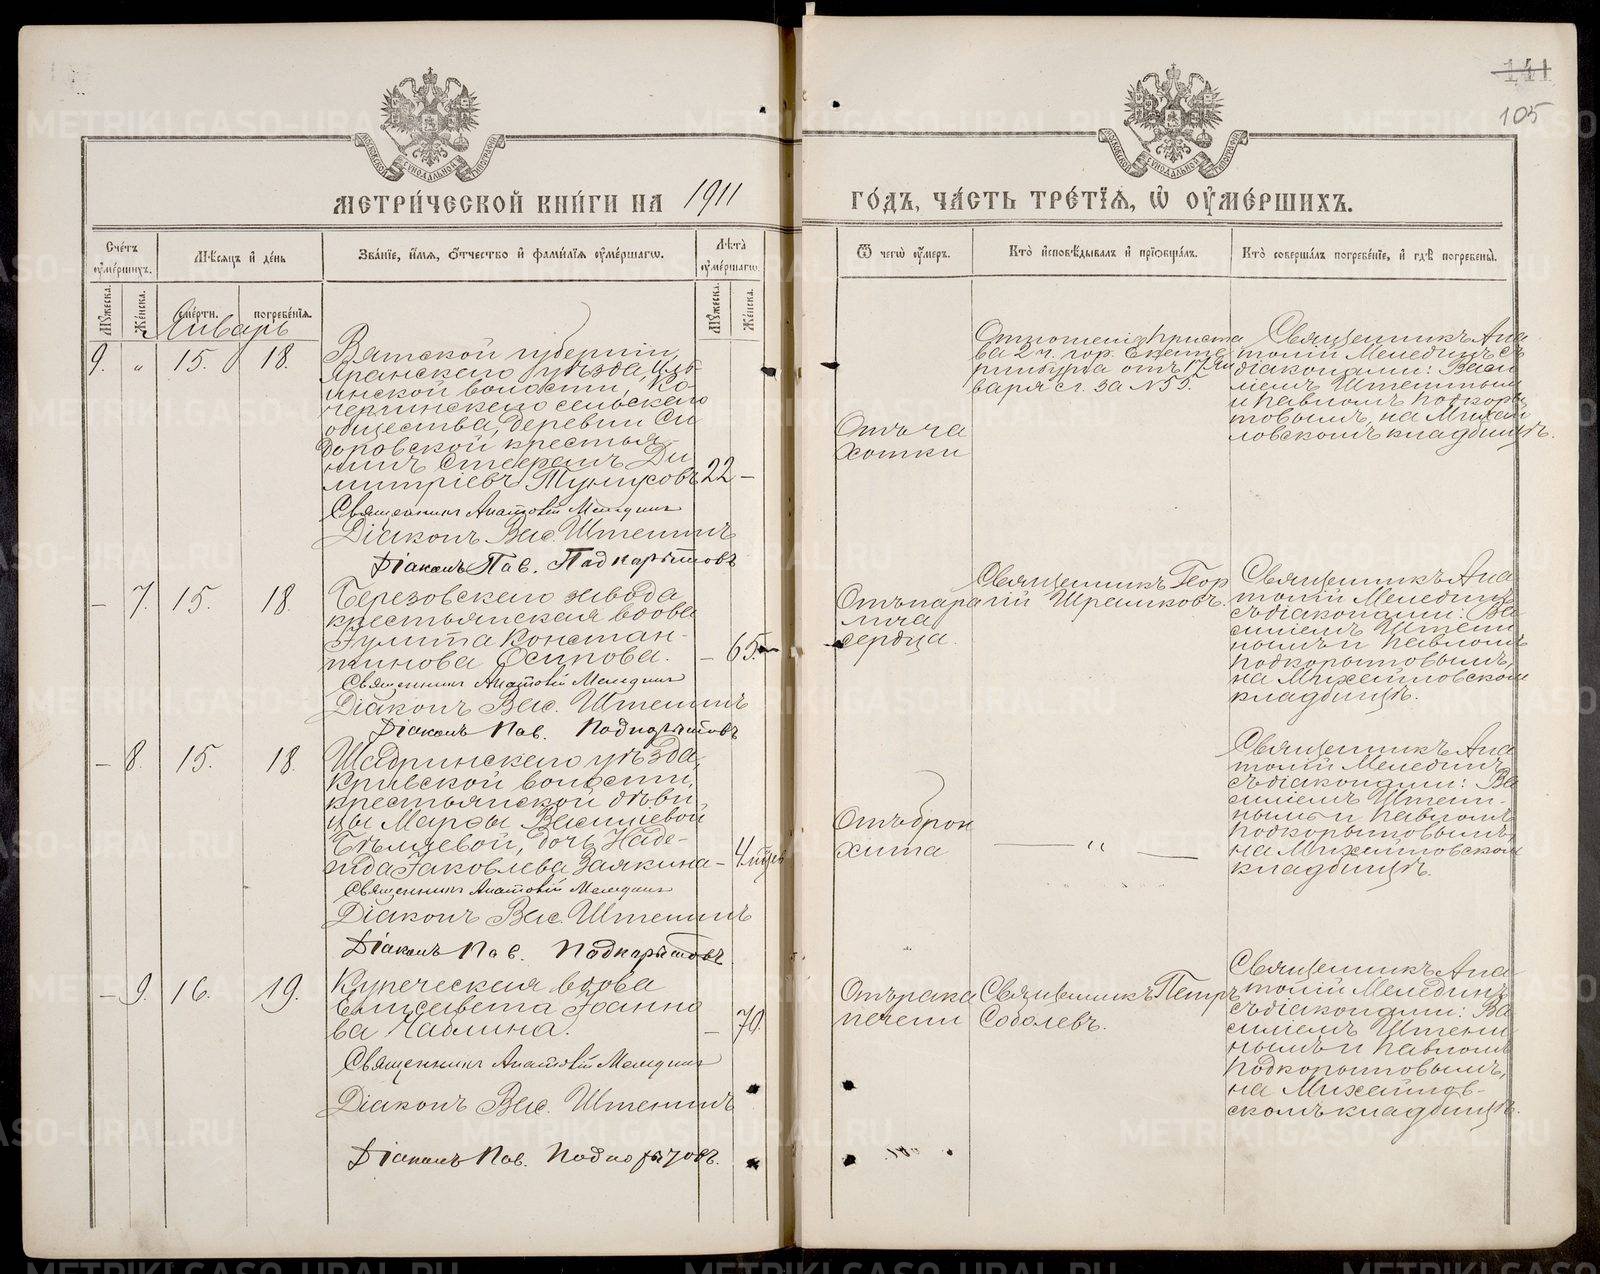 141
105
МОСКОВСКОЙ СѴНОДАЛЬНОЙ ТИПОГРАФІИ
МОСКОВСКОЙ СѴНОДАЛЬНОЙ ТИПОГРАФІИ
МЕТРИ́ЧЕСКОЙ КНИ́ГИ НА 1911
ГО́ДЪ, ЧА́СТЬ ТРЕ́ТІѦ, Ѡ҆ ОУ҆МЕ́РШИХЪ.
Сче́тъ оу҆ме́ршихъ.
Мѣ́сяцъ и҆ де́нь
Зва́нїе, и҆́мѧ, ѻ҆́тчество и҆ фами́лїѧ оу҆ме́ршагѡ.
Лѣ́та оу҆ме́ршагѡ.
Ѿ чегѡ̀ оу҆́меръ.
Кто̀ и҆сповѣ́дывалъ и҆ прїѡбща́лъ.
Кто̀ соверша́лъ погребе́нїе, и҆ гдѣ̀ погребены̀.
Мꙋ́жеска.
Же́нска.
сме́рти.
погребе́нїѧ.
Мꙋ́жеска.
Же́нска.
Январь
9. „ 15. 18.
Вятской губерніи,
Яранскаго уѣзда,
инской волости, Ко-
чергинскаго сельскаго
общества, деревни Си
доровской крестья-
нинъ
митріевъ Туниковъ 22 –
Священникъ Анатолій Мелединъ
Діаконъ Вас. Штенинъ
Діаконъ Пав. Подкорытовъ
Отъ ча
хотки
Отношеніе Приста
ва 2 ч. гор. Екате
ринбурга отъ 17 Ян
варя с. г. за № 55.
Священникъ Ана
толій Мелединъ съ
діаконами: Васи
ліемъ Штениным
и Павломъ Подкоры
товымъ, на Михай
ловскомъ кладбищѣ.
– 7. 15. 18.
Березовскаго завода
крестьянская вдова
Іулита Констан-
тинова Осипова. – 65. –
Священникъ Анатолій Меледин
Діаконъ Вас. Штенинъ
Діаконъ Пав. Подкорытовъ
Отъ пара
лича
сердца.
Священникъ Геор
гій Ирешковъ.
Священникъ Ана
толій Мелединъ
съ діаконами: Ва
силіемъ Штени
нымъ и Павломъ
Подкорытовымъ,
на Михайловском
кладбищѣ.
– 8. 15. 18.
Шадринскаго уѣзда,
Кривской волости,
крестьянской дѣви
цы Марѳы Васильевой
Бѣляевой, дочь Наде-
жда Іаковлева Заякина – 4 мѣсяц
Священникъ Анатолій Мелединъ
Діаконъ Вас. Штенинъ
Діаконъ Пав. Подкорытовъ
Отъ брон
хита
— „ —
Священникъ Ана
толій Мелединъ
съ діаконами: Ва
силіемъ Штени-
нымъ и Павломъ
Подкорытовымъ,
на Михайловском
кладбищѣ.
– 9. 16. 19.
Купеческая вдова
Елисавета Іоанно
ва Чаблина. – 70.
Священникъ Анатолій Меледин
Діаконъ Вас. Штенинъ
Діаконъ Пав. Подкорытовъ.
Отъ рака
печени
Священникъ Петръ
Соболевъ.
Священникъ Ана
толій Мелединъ
съ діаконами: Ва
силіемъ Штени
нымъ и Павломъ
Подкорытовымъ,
на Михайлов-
скомъ кладбищѣ.